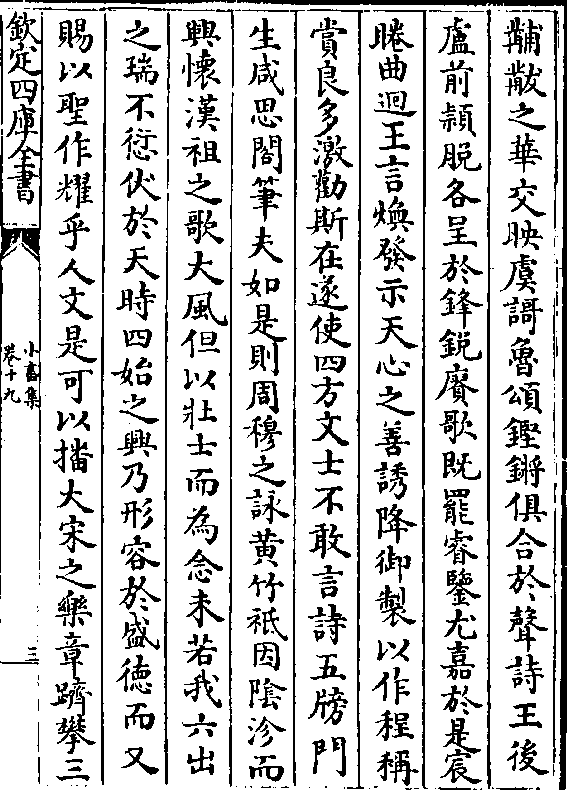 黼黻之華交映虞謌魯頌鏗鏘俱合於聲詩王後
盧前頴脫各呈於鋒銳賡歌既罷睿鑒尤嘉於是宸
睠曲迴王言煥發示天心之善誘降御製以作程稱
賞良多激勸斯在遂使四方文士不敢言詩五牓門
生咸思閣筆夫如是則周穆之詠黄竹秖因陰沴而
興懷漢祖之歌大風但以壯士而為念未若我六出
之瑞不愆伏於天時四始之興乃形容於盛徳而又
賜以聖作耀乎人文是可以播大宋之樂章躋攀三
欽定四庫全書
小畜集
卷十九
三